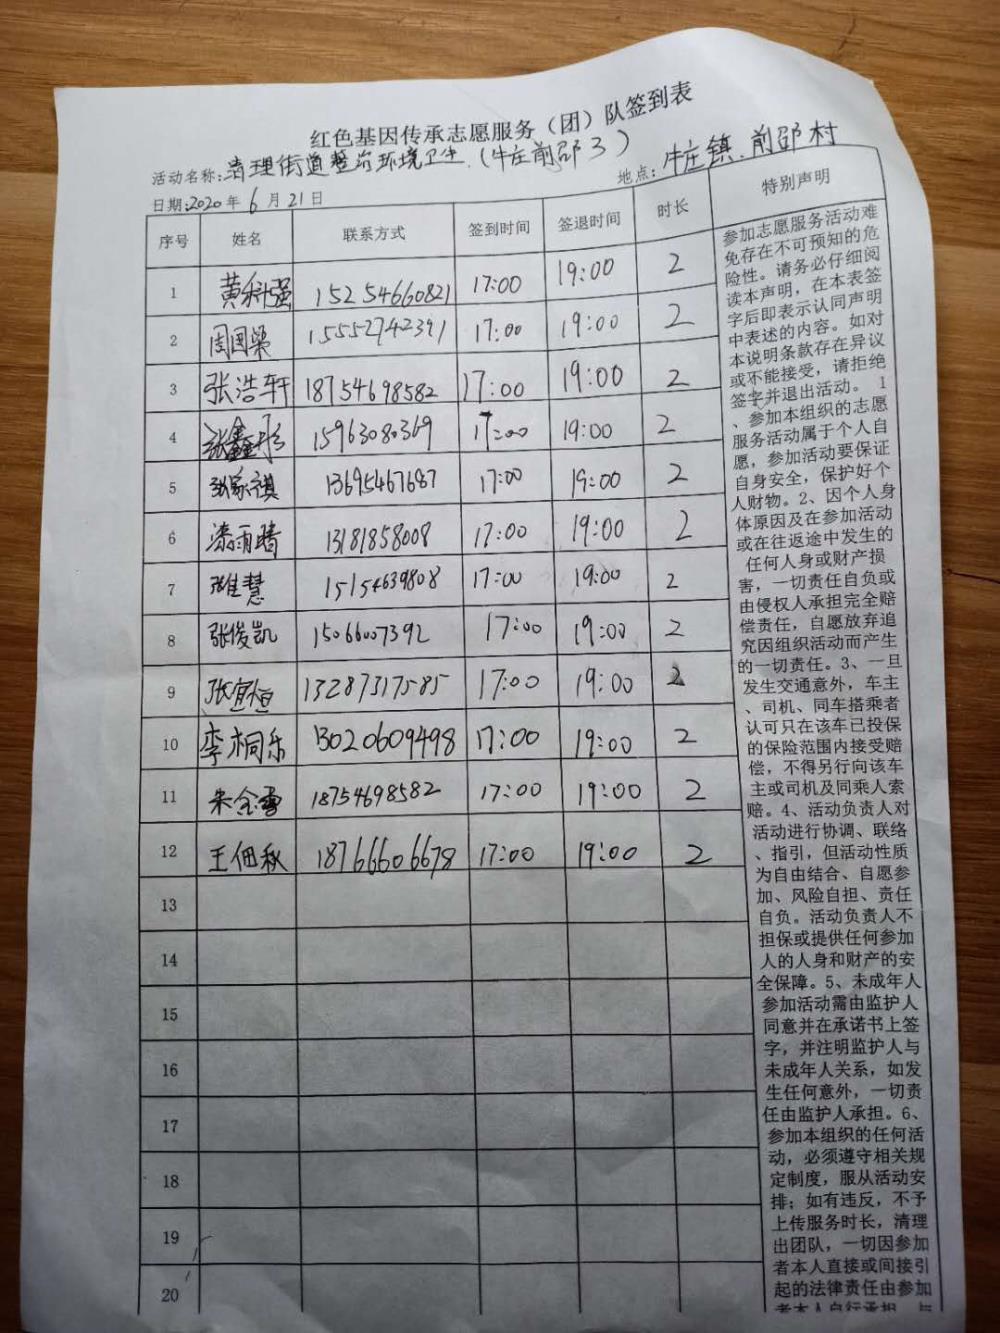 红色基因传承志愿服务（团）队签到表
活动名称:清理街道整治环境卫生.(牛庄前邵3) 地点:牛庄镇.前邵村
日期:2020年6月21日
序号 姓名 联系方式 签到时间 签退时间 时长 特别声明
1 黄科强 15254660821 17:00 19:00 2
2 周国荣 15552742391 17:00 19:00 2
3 张浩轩 18754698582 17:00 19:00 2
4 张鑫彤 15963080369 17:00 19:00 2
5 张家祺 13695467687 17:00 19:00 2
6 雨晴 13181858008 17:00 19:00 2
7 张佳慧 15154639808 17:00 19:00 2
8 张俊凯 15066007392 17:00 19:00 2
9 张宜恒 13287317585 17:00 19:00 2
10 李桐乐 13020609498 17:00 19:00 2
11 朱金雪 18754698582 17:00 19:00 2
12 王佃秋 18766606678 17:00 19:00 2
13
14
15
16
17
18
19
20
参加志愿服务活动难
免存在不可预知的危
险性。请务必仔细阅
读本声明，在本表签
字后即表示认同声明
中表述的内容。如对
本说明条款存在异议
或不能接受，请拒绝
签字并退出活动。1
、参加本组织的志愿
服务活动属于个人自
愿，参加活动要保证
自身安全，保护好个
人财物。2、因个人身
体原因及在参加活动
或在往返途中发生的
任何人身或财产损
害，一切责任自负或
由侵权人承担完全赔
偿责任，自愿放弃追
究因组织活动而产生
的一切责任。3、一旦
发生交通意外，车主
、司机、同车搭乘者
认可只在该车已投保
的保险范围内接受赔
偿，不得另行向该车
主或司机及同乘人索
赔。4、活动负责人对
活动进行协调、联络
、指引，但活动性质
为自由结合、自愿参
加、风险自担、责任
自负。活动负责人不
担保或提供任何参加
人的人身和财产的安
全保障。5、未成年人
参加活动需由监护人
同意并在承诺书上签
字，并注明监护人与
未成年人关系，如发
生任何意外，一切责
任由监护人承担。6、
参加本组织的任何活
动，必须遵守相关规
定制度，服从活动安
排；如有违反，不予
上传服务时长，清理
出团队，一切因参加
者本人直接或间接引
起的法律责任由参加
者本人自行承担，与